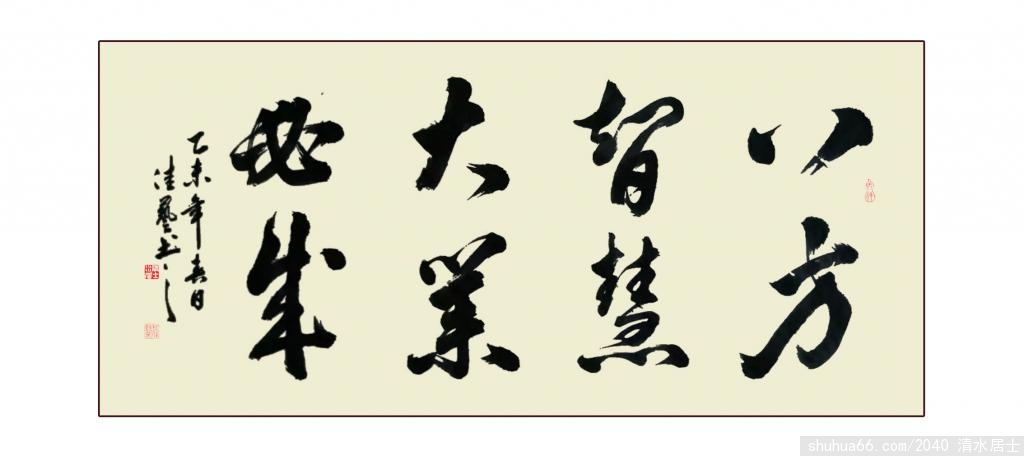 八方
智慧
大業
必成
乙未年春日
佳藝书之
shuhua66.com/2040 清水居士